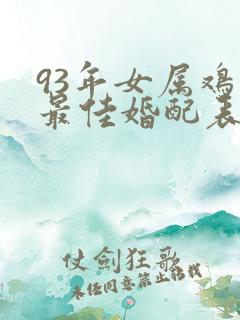 93年女属鸡
最佳婚配表
仗劍狂歌
未经同意禁止转载